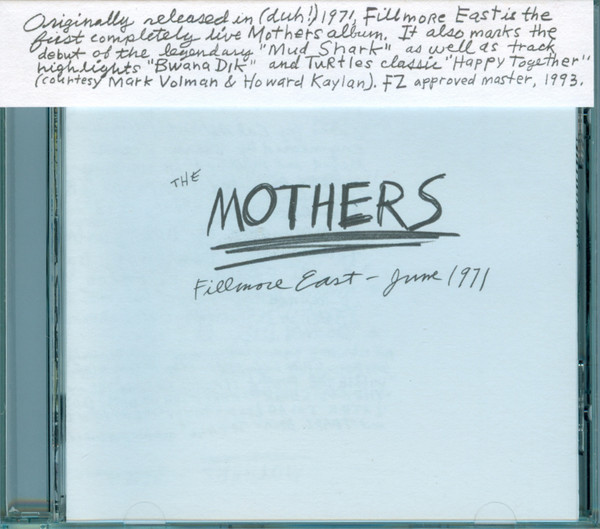 Originally released in (duh!) 1971, Fillmore East is the
first completely live Mothers album. It also marks the
debut of the legendary "Mud Shark" as well as track
highlights "Bwana Dik" and Turtles classic "Happy Together"
(courtesy Mark Volman & Howard Kaylan). FZ approved master, 1993.
THE
MOTHERS
Fillmore East - June 1971